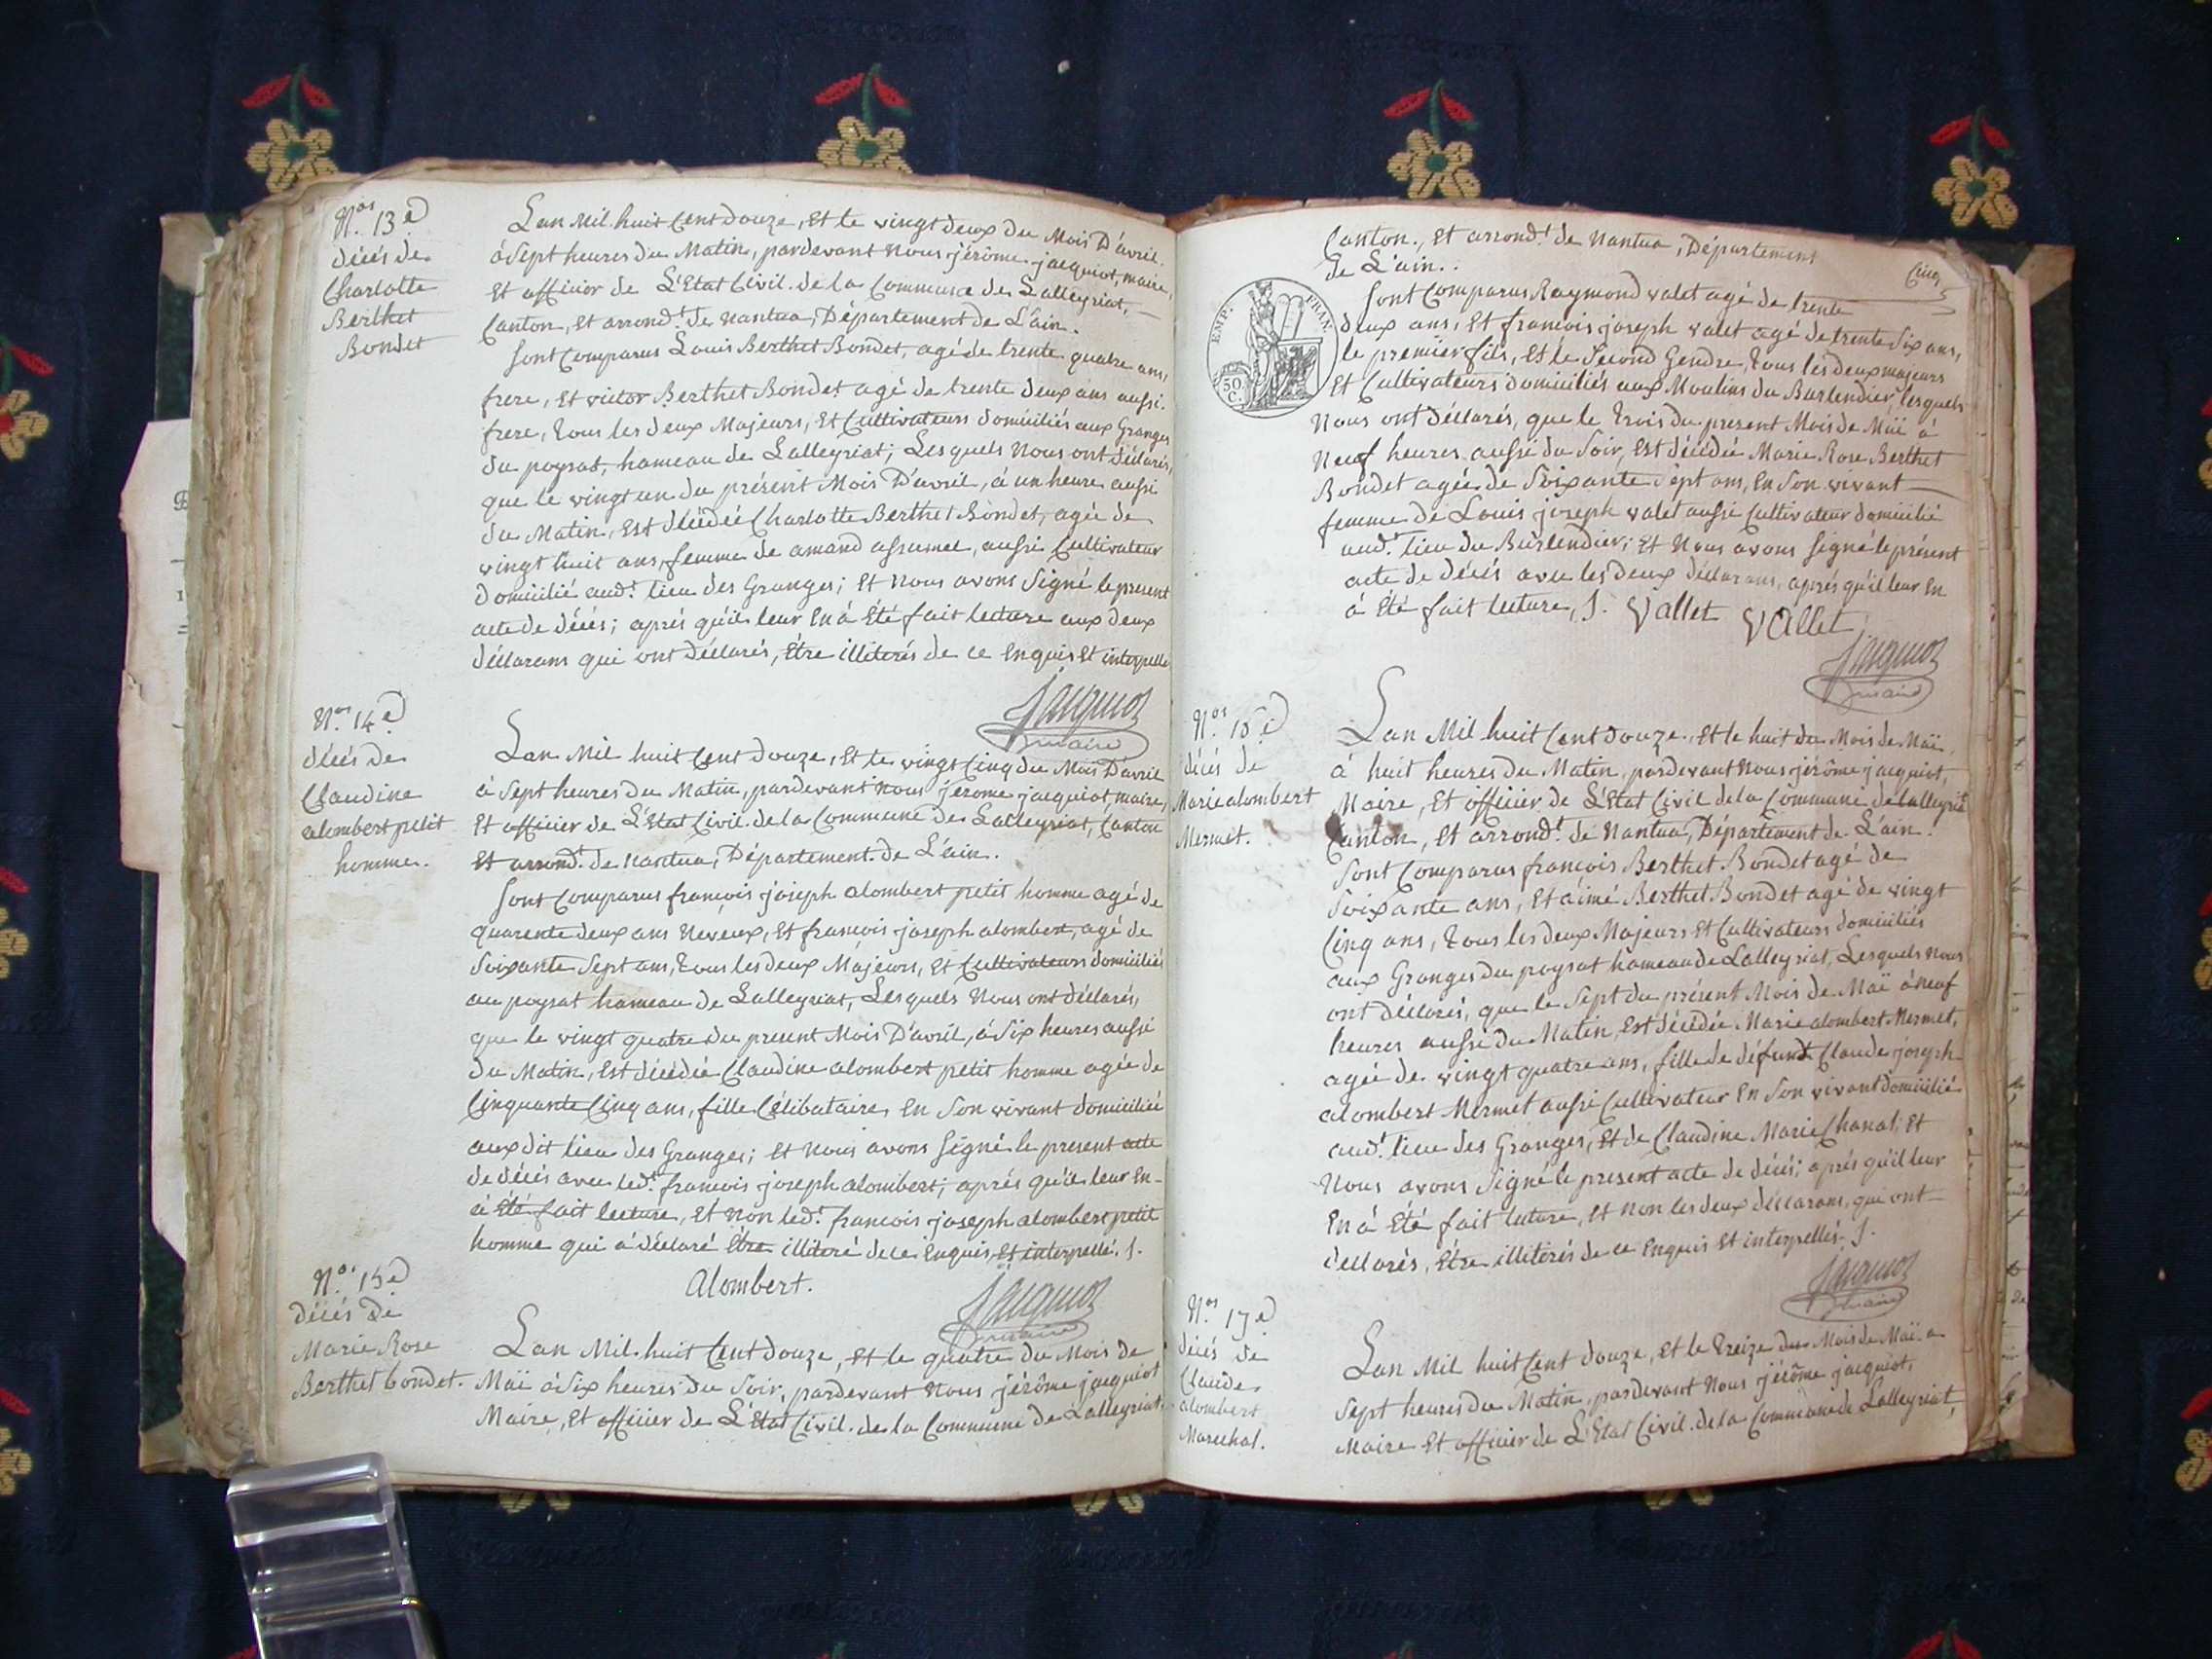 Nos. 13e
décés de
Charlotte
Berthet
Bondet
Lan Mil huit Cent douze, Et le vingt deux du Mois D'avril
à Sept heures du Matin, pardevant Nous jérôme jacquiot, maire,
Et officier de L'Etat Civil de la Commune de Lalleyriat,
Canton, Et arrond.t de Nantua, Département de L'ain.
Sont Comparus Louis Berthet Bondet, agé de trente quatre ans,
frere, Et victor Berthet Bondet agé de trente deux ans aussi
frere, tous les deux Majeurs, Et Cultivateurs domiciliés aux Granges
du poysat, hameau de Lalleyriat; Lesquels Nous ont déclarés,
que le vingt un du présent Mois D'avril, à un heure aussi
du Matin, Est décédée Charlotte Berthet Bondet, agée de
vingt huit ans, femme de amand assumel, aussi Cultivateur
domicilié aud.t lieu des Granges; Et Nous avons Signé le présent
acte de décés; aprés qu'il leur En à Eté fait lecture aux deux
déclarans qui ont déclarés, Etre illiterés de ce Enquis Et interpellé
Jacquiot
maire
Nos. 14e
décés de
Claudine
alombert petit
homme.
Lan Mil huit Cent douze, Et le vingt Cinq du Mois D'avril
à Sept heures du Matin, pardevant Nous jérome jacquiot, maire,
Et officier de L'Etat Civil de la Commune de Lalleyriat, Canton
Et arrond.t de Nantua, Département de L'ain.
Sont Comparus françois joseph alombert petit homme agé de
quarente deux ans Neveux, Et françois joseph alombert, agé de
Soixante Sept ans, tous les deux Majeurs, Et Cultivateurs domiciliés
au poysat hameau de Lalleyriat, Lesquels Nous ont déclarés,
que le vingt quatre du present Mois D'avril, à Six heures aussi
du Matin, Est décédée Claudine alombert petit homme agée de
Cinquante Cinq ans, fille Célibataire, En Son vivant domiciliée
auxdit lieu des Granges; Et Nous avons Signé le present acte
de décés avec led.t françois joseph alombert; aprés qu'il leur En
à Eté fait lecture, Et Non led.t françois joseph alombert petit
homme qui à déclaré Etre illiteré de ce Enquis, Et interpellé. /.
Alombert.
Jacquiot
maire
Nos. 15e
décés de
Marie Rose
Berthet bondet.
Lan Mil huit Cent douze, Et le quatre du Mois de
Maï à Six heures du Soir, pardevant Nous jérôme jacquiot
Maire, Et officier de L'Etat Civil de la Commune de Lalleyriat.
Canton, Et arrond.t de Nantua, Département
de L'ain.
Cinq
EMP. FRAN.
50
C.
Sont Comparus Raymond valet agé de trente
deux ans, Et françois joseph valet agé de trente Six ans,
le premier fils, Et le Second Gendre, tous les deux majeurs
Et Cultivateurs domiciliés aux Moulins du Burlendier, lesquels
Nous ont déclarés, que le trois du present Mois de Maï à
Neuf heures aussi du Soir, Est décédée Marie Rose Berthet
Bondet agée de Soixante Sept ans, En Son vivant
femme de Louis joseph valet aussi Cultivateur domicilié
aud.t lieu du Burlendier; Et Nous avons Signé le présent
acte de décés avec les deux déclarans, aprés qu'il leur En
à Eté fait lecture, /. Vallet Vallet
Jacquiot
maire
Nos. 16e
décés de
Marie alombert
Mermet.
Lan Mil huit Cent douze, Et le huit du Mois de Maï
à huit heures du Matin, pardevant Nous jérôme jacquiot,
Maire, Et officier de L'Etat Civil de la Commune de Lalleyriat
Canton, Et arrond.t de Nantua, Département de L'ain.
Sont Comparus françois Berthet Bondet agé de
Soixante ans, Et aimé Berthet Bondet agé de vingt
Cinq ans, tous les deux Majeurs Et Cultivateurs domiciliés
aux Granges du poysat hameau de Lalleyriat, Lesquels Nous
ont déclarés, que le Sept du présent Mois de Maï à Neuf
heures aussi du Matin, Est décédée Marie alombert Mermet,
agée de vingt quatre ans, fille de défunt Claude joseph
alombert Mermet aussi Cultivateur En Son vivant domicilié
aud.t lieu des Granges, Et de Claudine Marie Chanal; Et
Nous avons Signé le present acte de décés; aprés qu'il leur
En à Eté fait lecture, Et Non les deux déclarans, qui ont
déclarés, Etre illiterés de ce Enquis Et interpellés. /.
Jacquiot
maire
Nos. 17e
décés de
Claude
alombert
Marechal.
Lan Mil huit Cent douze, Et le treize du Mois de Maï à
Sept heures du Matin, pardevant Nous jérôme jacquiot,
Maire Et officier de L'Etat Civil de la Commune de Lalleyriat,